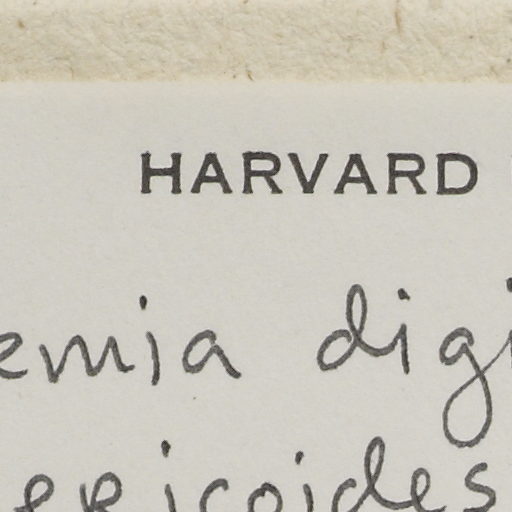 HARVARD
emia digi
ericoides